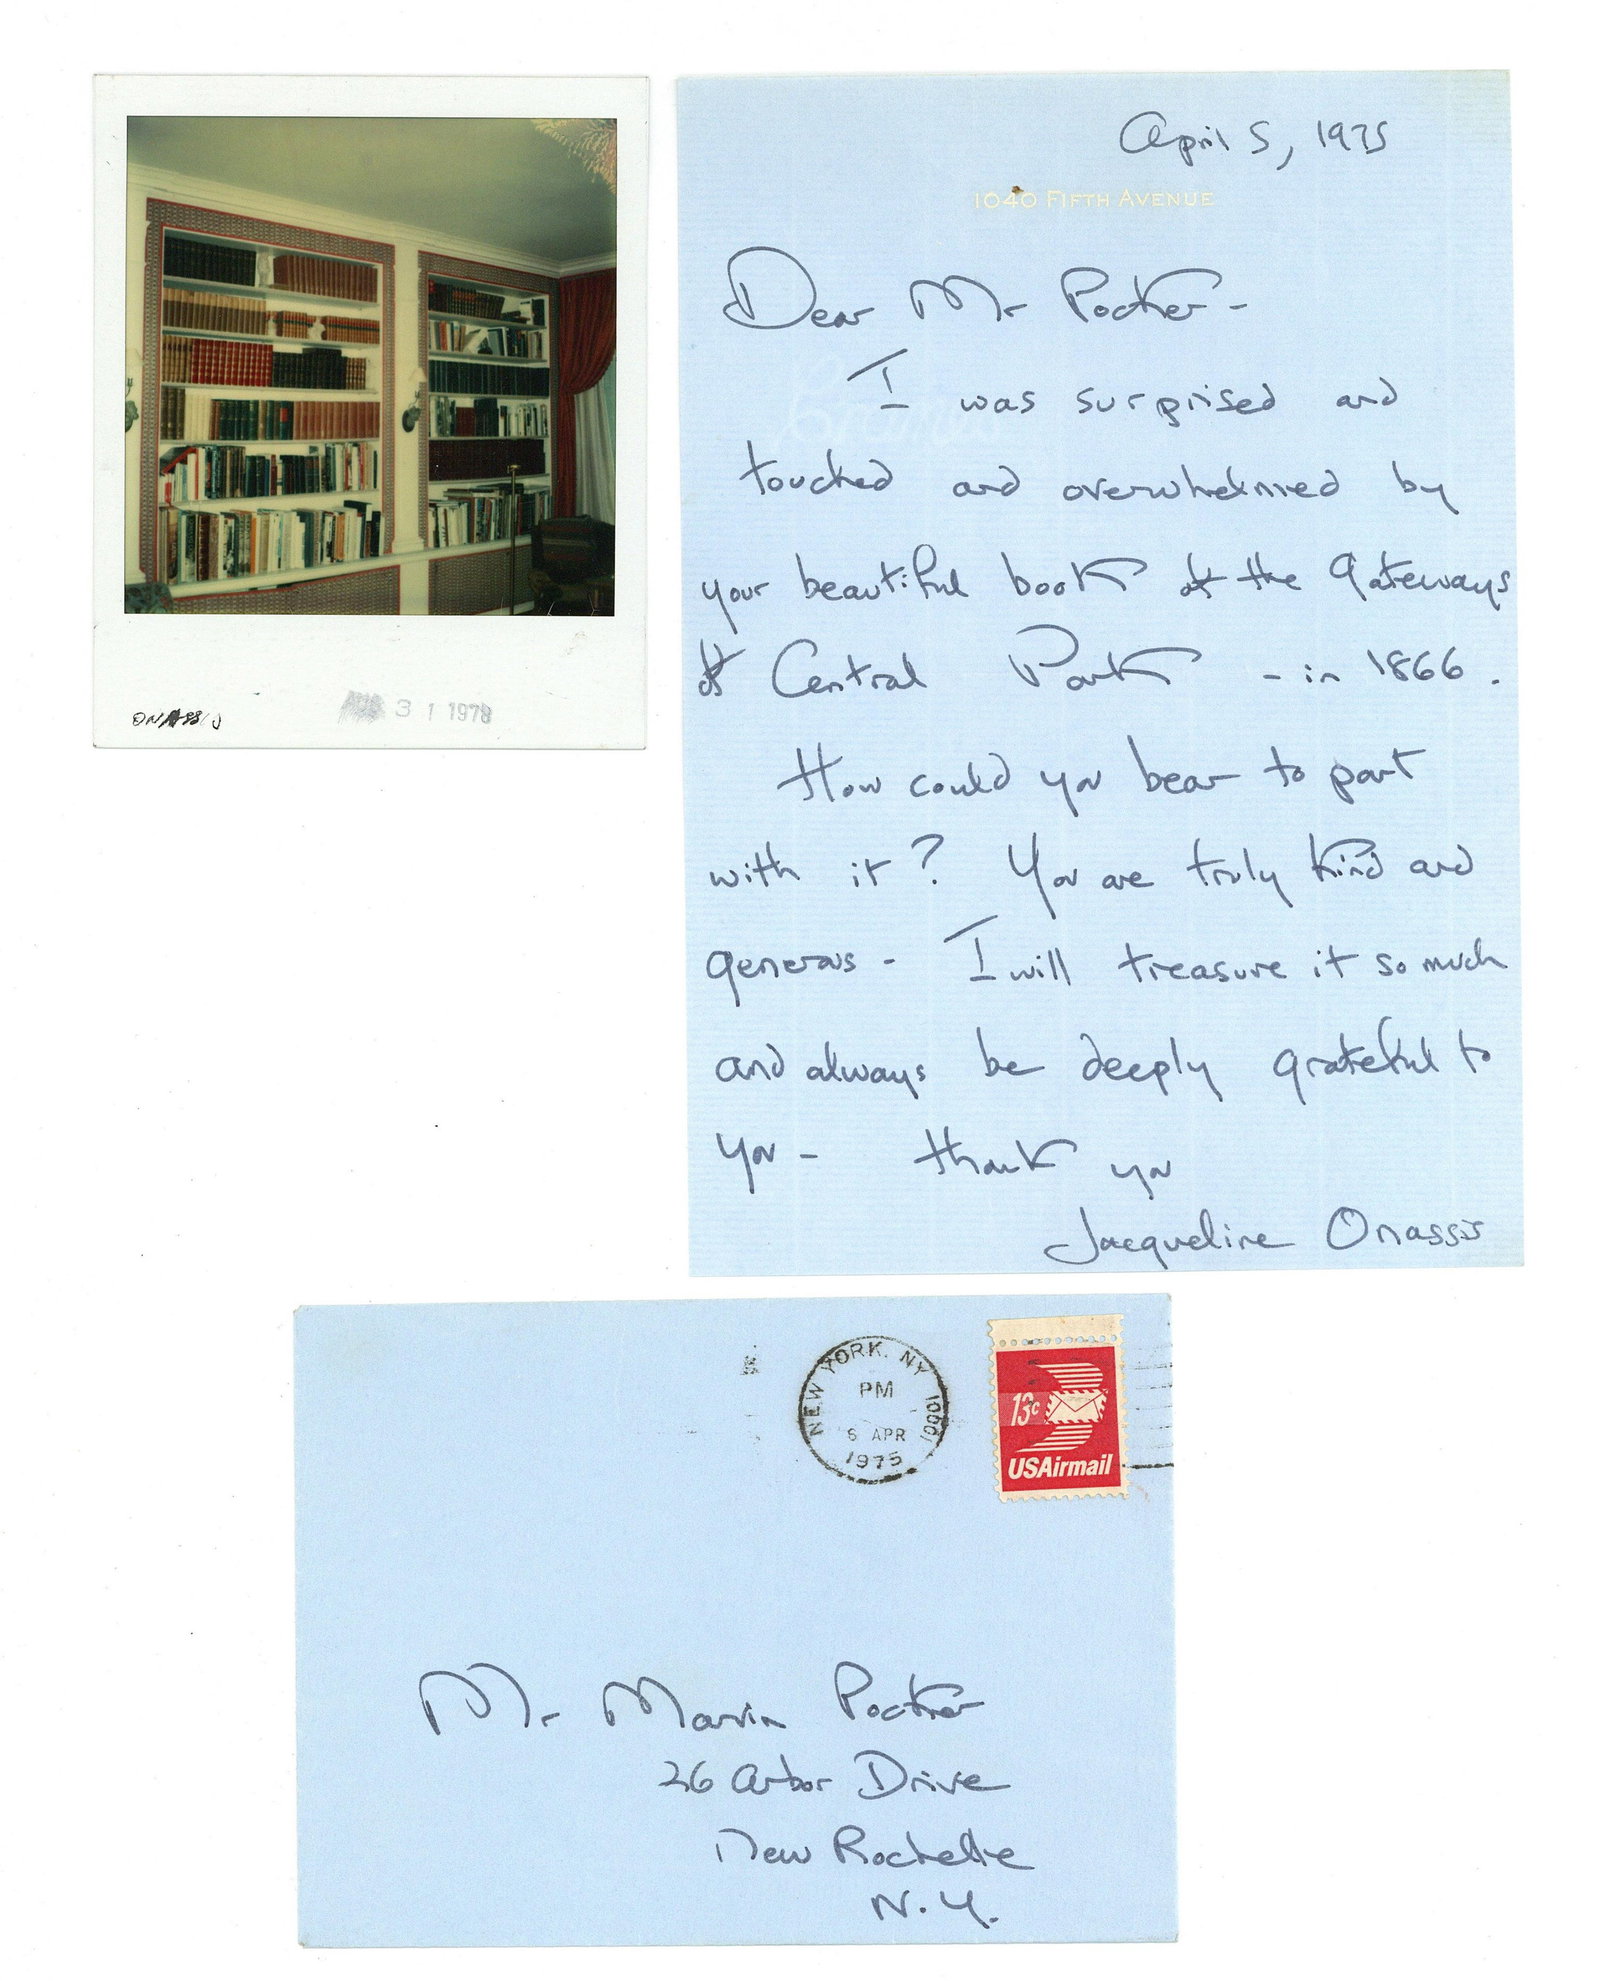 ONASSIS
31 1978
April 5, 1975
1040 FIFTH AVENUE
Dear Mr Pocker -
I was surprised and
touched and overwhelmed by
your beautiful book of the Gateways
of Central Park - in 1866.
How could you bear to part
with it? You are truly kind and
generous - I will treasure it so much
and always be deeply grateful to
you - thank you
Jacqueline Onassis
NEW YORK, NY 10001
PM
6 APR
1975
13c
USAirmail
Mr Marvin Pocker
26 Arbor Drive
New Rochelle
N.Y.